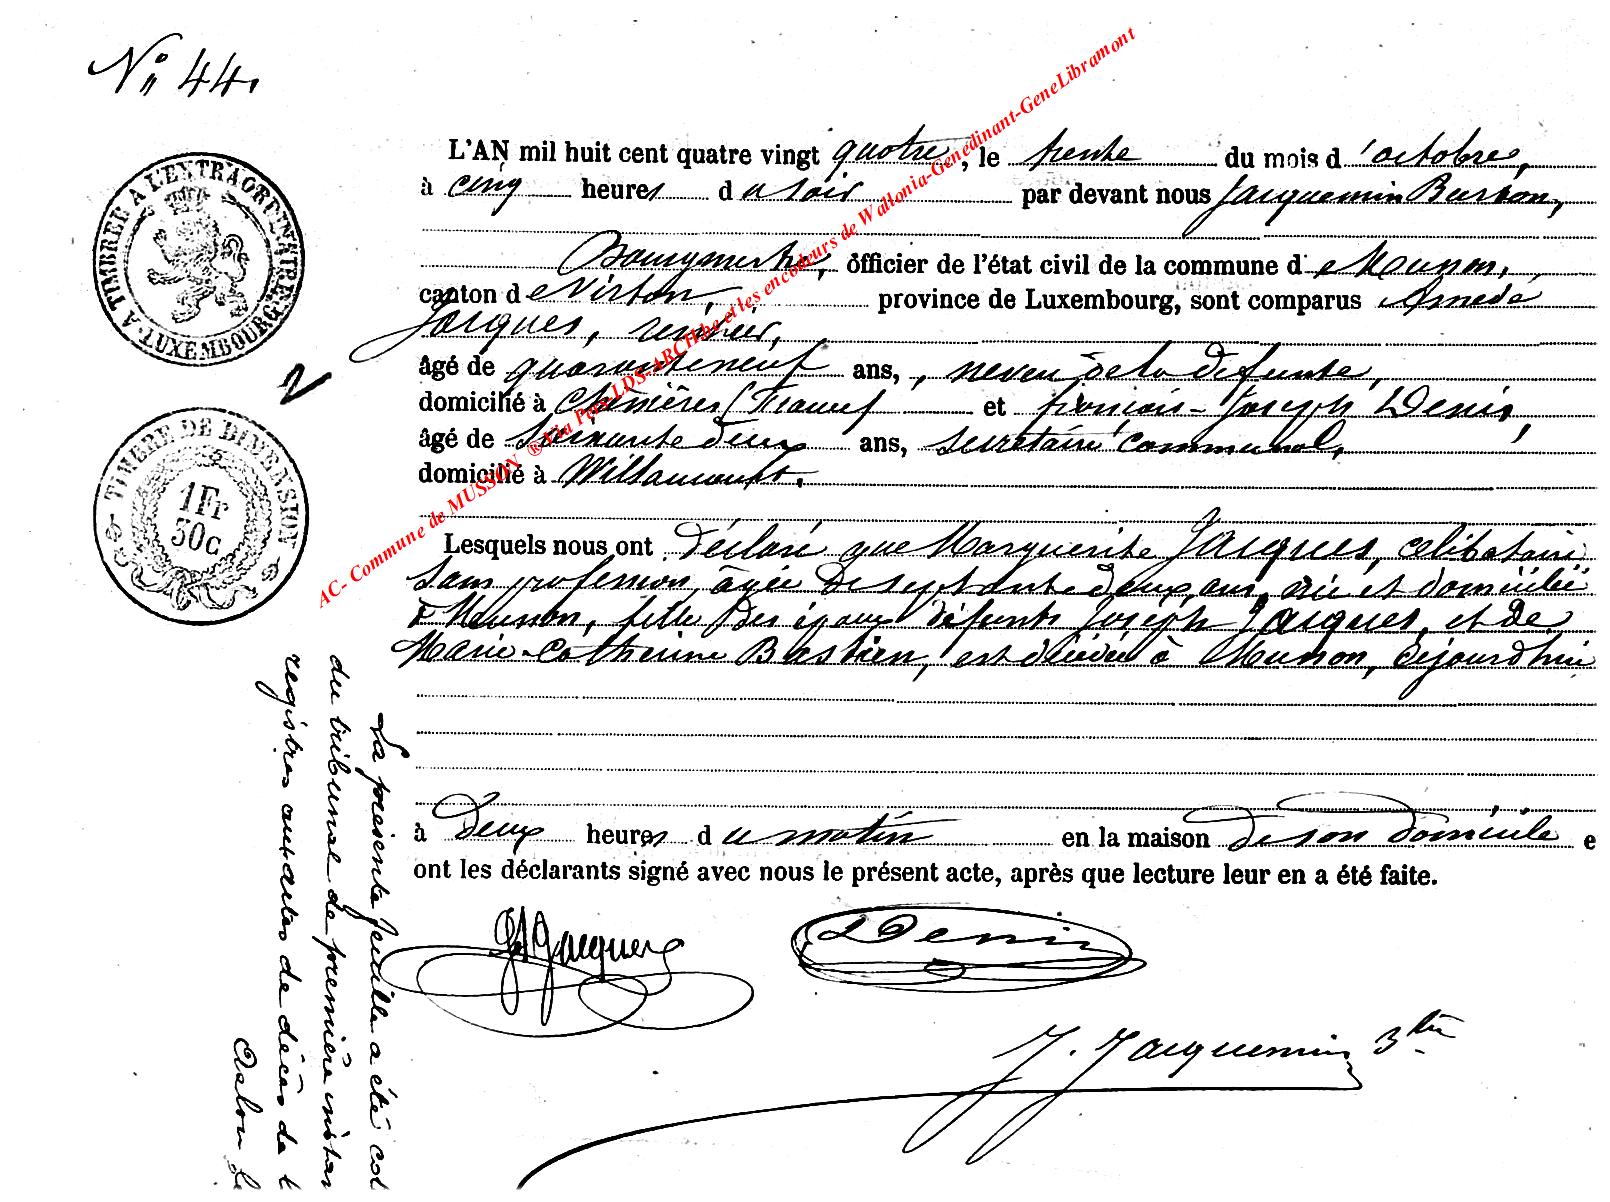 N° 44.
TIMBRÉE A L'EXTRAORDINAIRE
A. LUXEMBOURG
TIMBRE DE DIMENSION
1Fr
30c
AC- Commune de MUSSON ® Via Prix-LDS-ARCH.be et les encodeurs de Wallonia-Genedinant-GeneLibramont
L'AN mil huit cent quatre vingt quatre, le trente du mois d'octobre,
à cinq heures du soir par devant nous Jacquemin Burton,
Bourgmestre, officier de l'état civil de la commune de Musson,
canton de Virton, province de Luxembourg, sont comparus Amedé
Jacques, rentier,
âgé de quaranteneuf ans, neveu de la défunte,
domicilié à (France et françois-Joseph Denis,
âgé de soixante deux ans, secrétaire communal,
domicilié à Willancourt.
Lesquels nous ont déclaré que Marguerite Jacques, célibataire
sans profession, âgée de septante deux ans, née et domiciliée
à Musson, fille des époux défunts Joseph Jacques, et de
Marie-Catherine Bastien, est décédée à Musson, déjourdhui
à deux heures du matin en la maison de son domicile e
ont les déclarants signé avec nous le présent acte, après que lecture leur en a été faite.
Jacques
Denis
J. Jacquemin 3tre
La présente feuille a été cot
du tribunal de première instan
registres courantes de décès de l
Arlon le